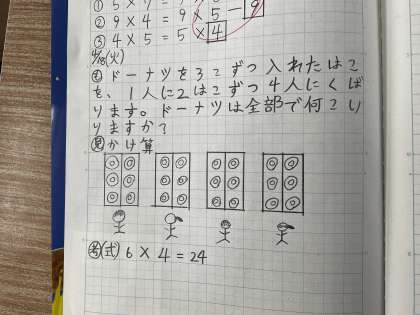 ① 5 × 9 =
② 9 × 4 = 9 × 5 − 9
③ 4 × 5 = 5 × 4
4/18(火)
も ドーナツを3こずつ入れたはこ
を、1人に2はこずつ4人にくば
ります。ドーナツは全部で何こい
りますか?
見 かけ算
考 (式) 6 × 4 = 24